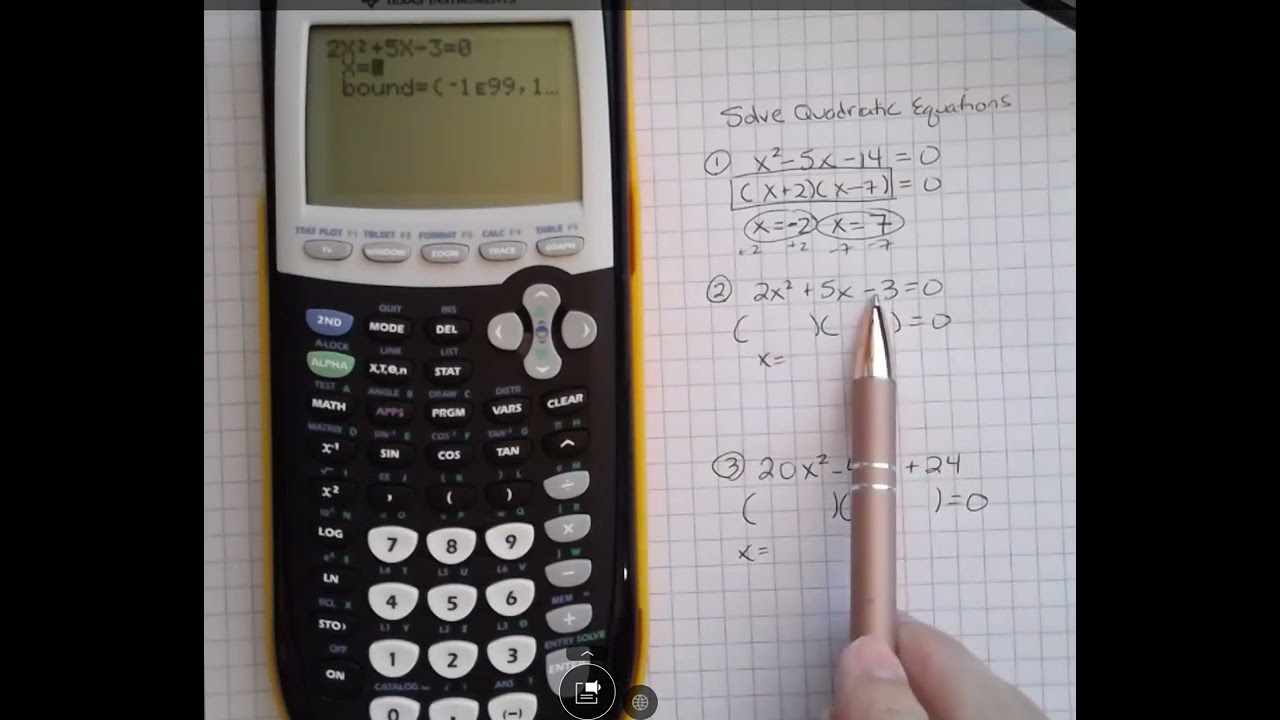 TEXAS INSTRUMENTS
2X²+5X-3=0
X=
bound=(-1E99,1...
STAT PLOT F1 TBLSET F2 FORMAT F3 CALC F4 TABLE F5
Y= WINDOW ZOOM TRACE GRAPH
QUIT INS
2ND MODE DEL
A-LOCK LINK LIST
ALPHA X,T,θ,n STAT
TEST A ANGLE B DRAW C DISTR
MATH APPS PRGM VARS CLEAR
MATRIX D SIN⁻¹ E COS⁻¹ F TAN⁻¹ G π H
x⁻¹ SIN COS TAN ^
√ I EE J { K } L e M
x² , ( ) ÷
10ˣ N u O v P w Q [ R
LOG 7 8 9 ×
eˣ S L4 T L5 U L6 V ] W
LN 4 5 6 −
RCL X L1 Y L2 Z L3 θ MEM "
STO› 1 2 3 +
OFF ENTRY SOLVE
ON ENTER
CATALOG ANS ?
0 . (−)
Solve Quadratic Equations
① x²-5x-14=0
(x+2)(x-7)=0
x=-2 x=7
+2 +2 -7 -7
② 2x²+5x-3=0
( )( )=0
x=
③ 20x²- +24
( )( )=0
x=